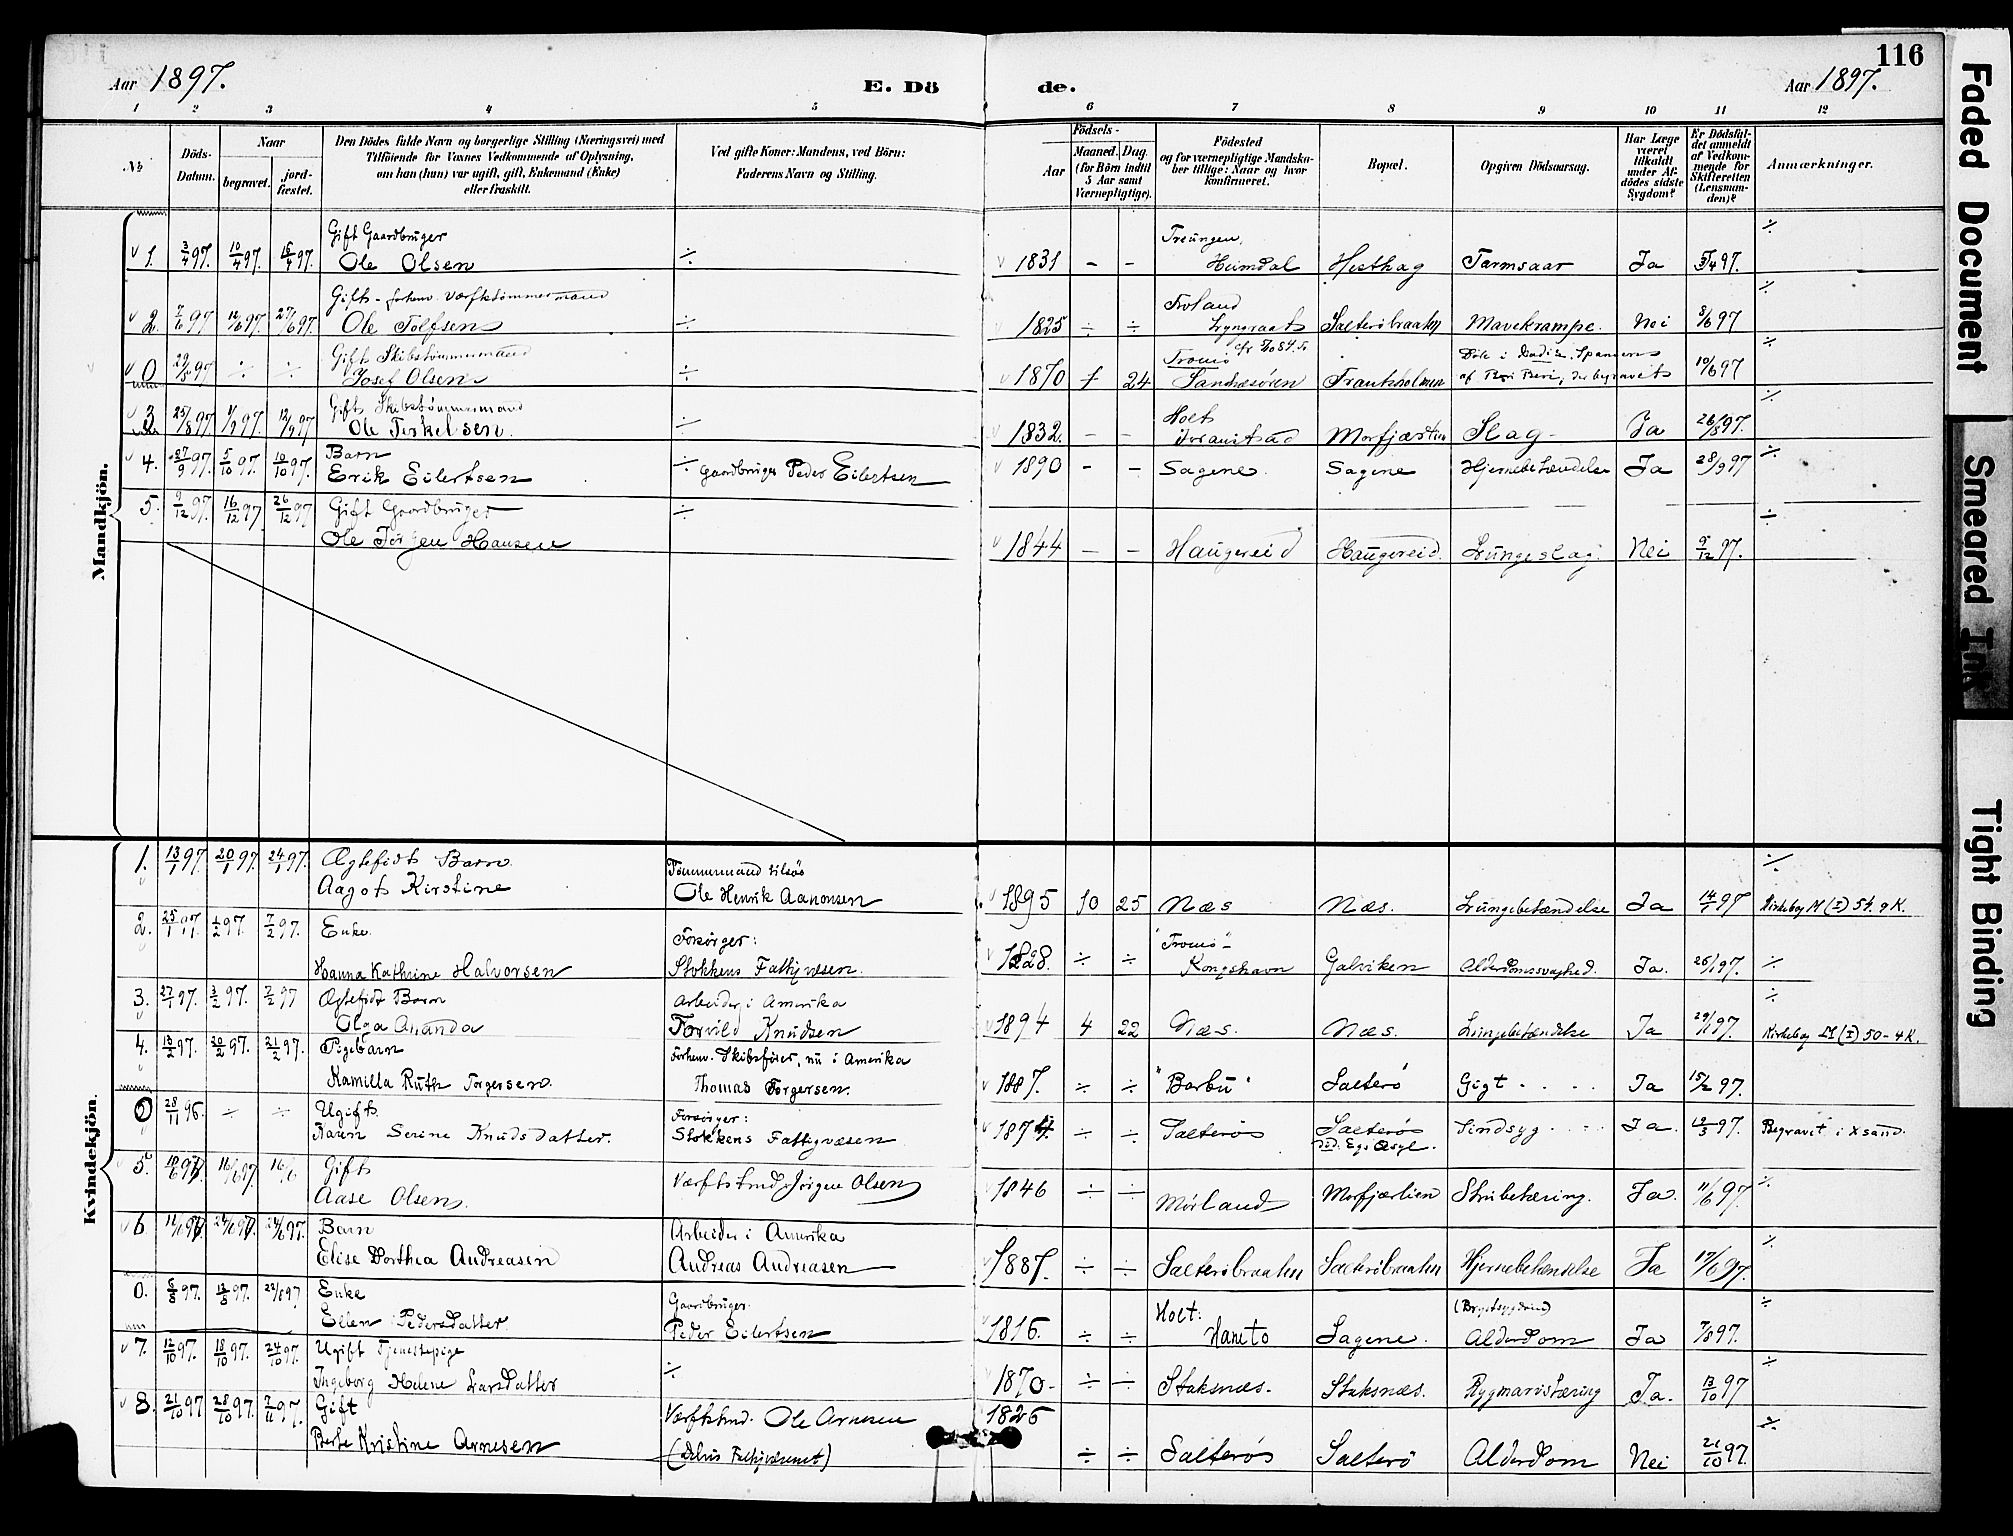 116
Aar 1897. E. Dö de. Aar 1897.
1 2 3 4 5 6 7 8 9 10 11 12
№ Döds-Datum. Naar begravet. jord-fæstet. Den Dödes fulde Navn og borgerlige Stilling (Næringsvei) med Tilföiende for Voxnes Vedkommende af Oplysning, om han (hun) var ugift, gift, Enkemand (Enke) eller fraskilt. Ved gifte Koner: Mandens, ved Börn: Faderens Navn og Stilling. Födsels- Aar Maaned. Dag. (for Börn indtil 5 Aar samt Værnepligtige). Födested og for værnepligtige Mandskaber tillige: Naar og hvor konfirmeret. Bopæl. Opgiven Dödsaarsag. Har Læge været tilkaldt under Afdödes sidste Sygdom? Er Dödsfaldet anmeldt af Vedkommende for Skifteretten (Lensmanden)? Anmærkninger.
Mandkjön.
1. 3/4 97. 10/4 97. 15/4 97. Gift Gaardbruger ÷ 1831 – – Treungen, ÷
Ole Olsen Heimdal Hesthag Tarmsaar Ja 5/4 97.
2. 7/6 97 12/6 97. 27/6 97. Gift - forhenv. Værftstømmermand ÷ 1825 ÷ ÷ Froland ÷
Ole Tolfsen Lyngraat Salterøbraaten Mavekrampe. Nei 8/6 97
0 29/5 97 ÷ ÷ Gift Skibstømmermand ÷ 1870 24 Tromø Døde i Cadiz, Spanien ÷
Josef Olsen Sandæsøren Frankholmen af Beri Beri, der begravet 10/6 97
3. 25/8 97 1/9 97. 12/9 97 Gift Skibstømmermand ÷ 1832. – – Holt ÷
Ole Terkelsen. Morfjærlien Slag Ja 26/8 97.
4. 27/9 97. 5/10 97. 10/10 97. Barn ÷ Gaardbruger Peder Eilertsen 1890 – – Sagene. Sagene Hjernebetændelse Ja 28/9 97 ÷
Erik Eilertsen
5. 9/12 97. 16/12 97 26/12 97 Gift Gaardbruger ÷ ÷
Ole Jørgen Hansen 1844 – – Haugereid Haugereid. Lungeslag. Nei 9/12 97.
Kvindekjön.
1. 13/1 97. 20/1 97. 24/1 97. Ægtefødt Barn. Tømmermand tilsøs ÷
Aagot Kirstine Ole Henrik Aanonsen 1895 10 25 Næs Næs. Lungebetændelse Ja 14/1 97 Kirkebog M (I) 54. 9 K.
2. 25/1 97. 1/2 97. 7/2 97. Enke. Forsørger: 1828. ÷ ÷ "Tromø"
Hanna Kathrine Halvorsen Stokkens Fattigvæsen. Kongshavn Galviken Alderdomssvaghed. Ja. 26/1 97. ÷
3. 27/1 97. 3/2 97. 7/2 97 Ægtefødt Barn Arbeider i Amerika ÷
Olga Amanda Torvild Knudsen 1894 4 22 Næs. Næs. Lungebetændelse Ja 29/1 97. Kirkebog M (I) 50 - 4 K.
4. 13/2 97. 20/2 97. 21/2 97. Pigebarn Forhenv. Skibsfører, nu i Amerika
Kamilla Ruth Torgersen. Thomas Torgersen. 1887. ÷ ÷ "Barbu" Salterø Gigt Ja 15/2 97.
0 28/11 96. ÷ ÷ Ugift. Forsørger: 1874 ÷ ÷ Salterøs Salterøs Sindsyg Ja. 12/3 97. Begravet i Xsand.
Karen Serine Knudsdatter. Stokkens Fattigvæsen Egs Asyl.
5. 10/6 97 16/6 97 16/6 Gift Værftstmd. Jørgen Olsen 1846 ÷ ÷ ÷
Aase Olsen. Mørland Morfjærlien Strubetæring. Ja. 11/6 97.
6. 11/6 97 24/6 97. Barn Arbeider i Amerika ÷
Elise Dorthea Andreasen Andreas Andreasen 1887. ÷ ÷ Salterøbraaten Salterøbraaten Hjernebetændelse Ja 17/6 97.
0. 6/8 97. 13/8 97. 22/8 97 Enke Gaardbruger. Holt: (Brystsygdom) ÷
Ellen Pedersdatter. Peder Eilertsen 1816. ÷ ÷ Haneto Sagene. Alderdom Ja 7/8 97.
7. 12/10 97. 18/10 97. 24/10 97. Ugift Tjenestepige ÷ 1870. ÷ ÷ ÷
Ingeborg Helene Larsdatter Staksnæs. Staksnæs. Rygmarvstæring Ja. 13/10 97
8. 21/10 97 28/10 97. 7/11 97. Gift Værftstmd. Ole Arnesen 1825 ÷
Berte Kristine Arnesen Fattigvæsenet) ÷ ÷ Salterøs Salterø Alderdom Nei 21/10 97.
Faded Document
Smeared Ink
Tight Binding